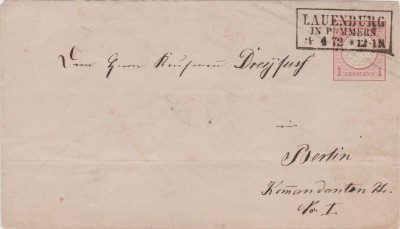 LAUENBURG
IN POMMERN
4 4 72 * 12-1N
1 GROSCHEN 1
Dem Herrn Kaufmann Dreyfuss
in
Berlin
Kommandanten St.
No. 1.